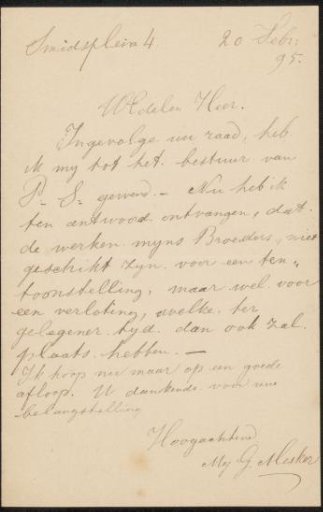 Smidsplein 4 20 Febr.
95.
WEdelen Heer.
Ingevolge uw raad, heb
ik mij tot het bestuur van
P. S. gewend. – Nu heb ik
ten antwoord ontvangen, dat
de werken mijns Broeders, niet
geschikt zijn voor een ten„
toonstelling, maar wel voor
een verloting, welke ter
gelegener tijd dan ook zal
plaats hebben. —
Ik hoop nu maar op een goede
afloop. U dankende voor uwe
belangstelling
Hoogachtend
Mej G Mesker